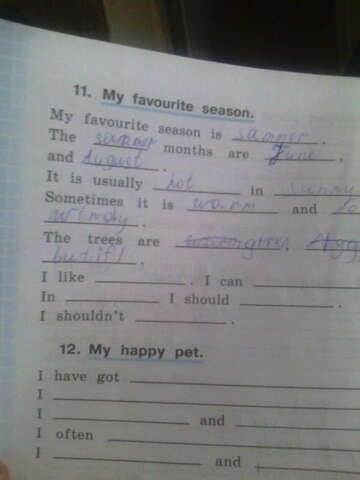 11. My favourite season.
My favourite season is samner.
The sammer months are June,
and August.
It is usually hot in sunny
Sometimes it is warm and
windy.
The trees are green,
I like ________. I can ________
In ________ I should ________.
I shouldn't ________.
12. My happy pet.
I have got ________
I ________
I ________ and ________
I often ________
I ________ and ________